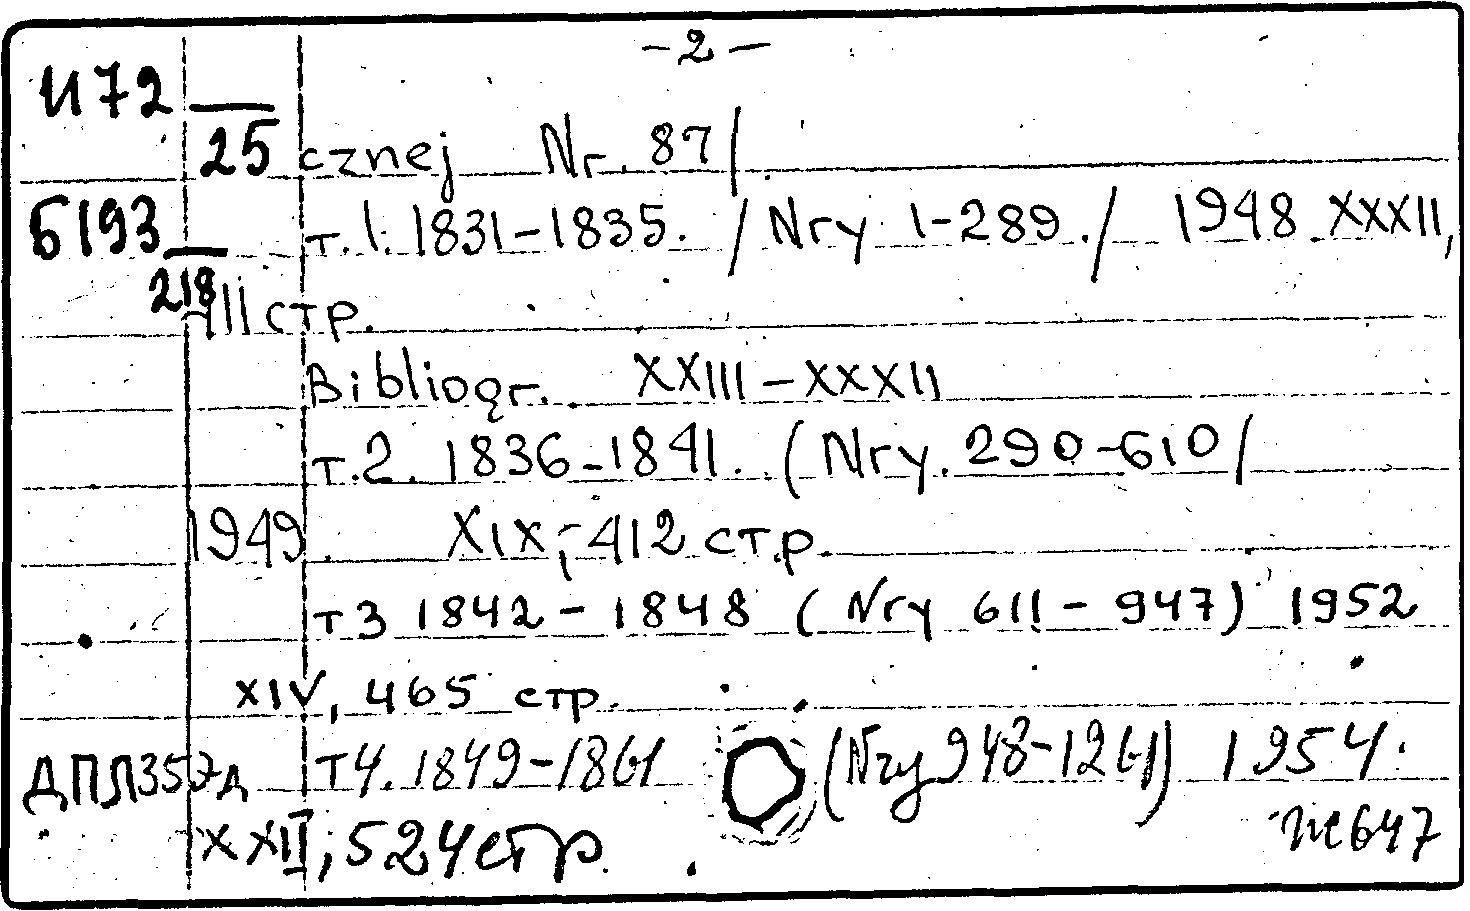 – 2 –
И72
25 cznej Nr. 87/
Б193 т.1. 1831–1835. /Nry 1–289./ 1948 XXXII,
218
III стр.
Bibliogr. XXIII–XXXII
т.2. 1836–1841. (Nry. 290–610/
1949. XIX, 412 стр.
т3 1842 – 1848 (Nry 611 – 947) 1952
XIV, 465 стр.
ДПЛ357д т4. 1849–1861 (Nry 948–1261) 1954.
XXII, 524 стр. 647